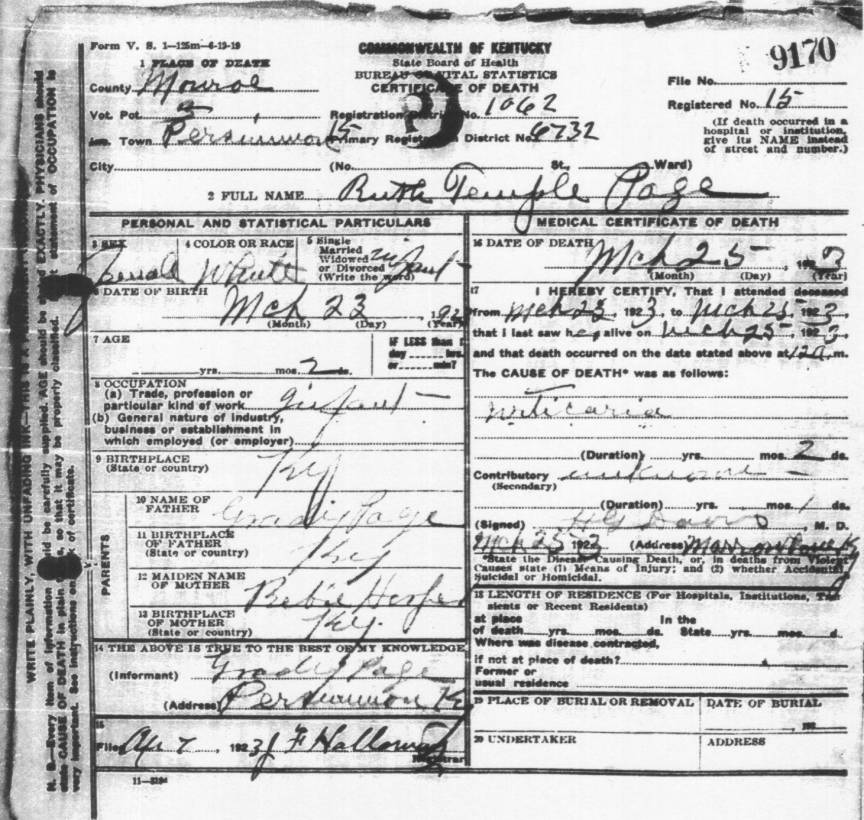 Form V. S. 1—125m—6-19-19
COMMONWEALTH OF KENTUCKY
State Board of Health
BUREAU OF VITAL STATISTICS
CERTIFICATE OF DEATH
9170
1 PLACE OF DEATH
County Monroe
File No.
Vot. Pct. 3
Registration District No. 1062
Registered No. 15
Inc. Town Persimmon
Primary Registration District No. 6732
(If death occurred in a hospital or institution, give its NAME instead of street and number.)
City (No. St., Ward)
2 FULL NAME Ruth Temple Page
PERSONAL AND STATISTICAL PARTICULARS
3 SEX Female
4 COLOR OR RACE White
5 Single Married Widowed or Divorced (Write the word) infant
6 DATE OF BIRTH
Mch 23, 192
(Month) (Day) (Year)
7 AGE
yrs. mos. 2 ds.
IF LESS than 1
day hrs.
or min?
8 OCCUPATION
(a) Trade, profession or
particular kind of work infant
(b) General nature of industry,
business or establishment in
which employed (or employer)
9 BIRTHPLACE
(State or country) Ky
PARENTS
10 NAME OF FATHER Grady Page
11 BIRTHPLACE OF FATHER (State or country) Ky
12 MAIDEN NAME OF MOTHER
13 BIRTHPLACE OF MOTHER (State or country) Ky.
14 THE ABOVE IS TRUE TO THE BEST OF MY KNOWLEDGE
(Informant) Grady Page
(Address) Persimmon Ky
15
Filed Ap 7, 1923 J F Holloway
Registrar
11—3194
MEDICAL CERTIFICATE OF DEATH
16 DATE OF DEATH
Mch 25, 1923
(Month) (Day) (Year)
17 I HEREBY CERTIFY, That I attended deceased
from Mch 23, 1923, to Mch 25, 1923,
that I last saw her alive on Mch 25, 1923
and that death occurred on the date stated above at 12 a m.
The CAUSE OF DEATH* was as follows:
Urticaria
(Duration) yrs. mos. 2 ds.
Contributory unknown
(Secondary)
(Duration) yrs. mos. 1 ds.
(Signed) H G Davis, M. D.
Mch 25 1923 (Address) Marrowbone Ky
*State the Disease Causing Death, or, in deaths from Violent
Causes state (1) Means of Injury; and (2) whether Accidental,
Suicidal or Homicidal.
18 LENGTH OF RESIDENCE (For Hospitals, Institutions, Transients or Recent Residents)
at place In the
of death yrs. mos. ds. State yrs. mos. d.
Where was disease contracted,
if not at place of death?
Former or
usual residence
19 PLACE OF BURIAL OR REMOVAL
DATE OF BURIAL
20 UNDERTAKER
ADDRESS
WRITE PLAINLY, WITH UNFADING INK—THIS IS A
N. B.—Every item of information should be carefully supplied. AGE should be stated EXACTLY. PHYSICIANS should
state CAUSE OF DEATH in plain terms, so that it may be properly classified. Exact statement of OCCUPATION is
very important. See instructions on back of certificate.